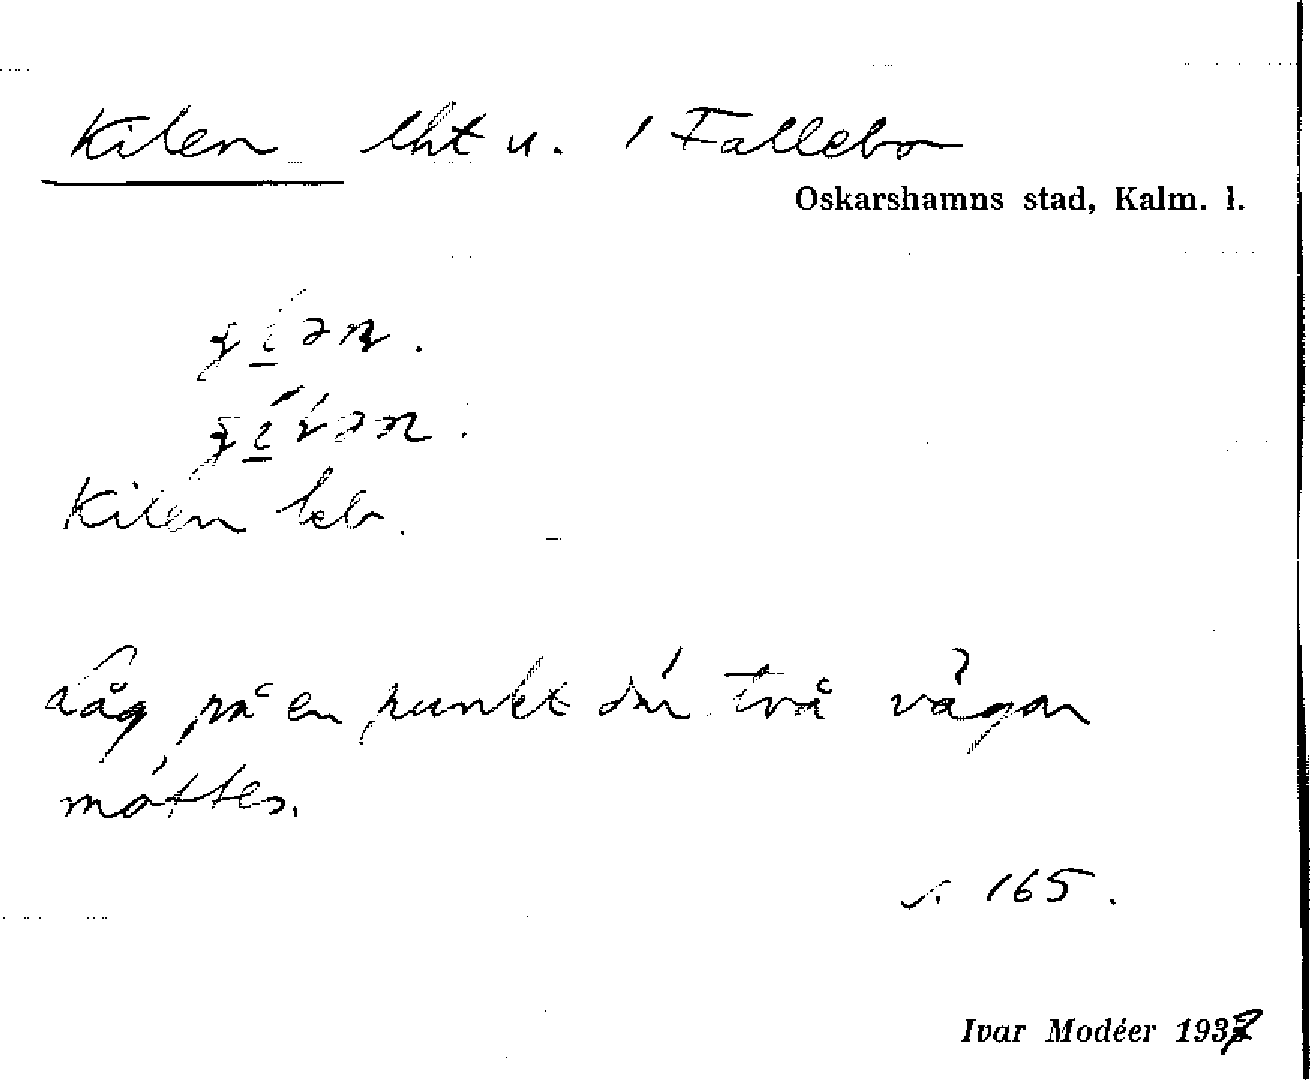 Kilen lht u. / Fallebo
Oskarshamns stad, Kalm. l.
Kilen beb.
Låg på en punkt där två vägar
möttes.
s. 165.
Ivar Modéer 1937